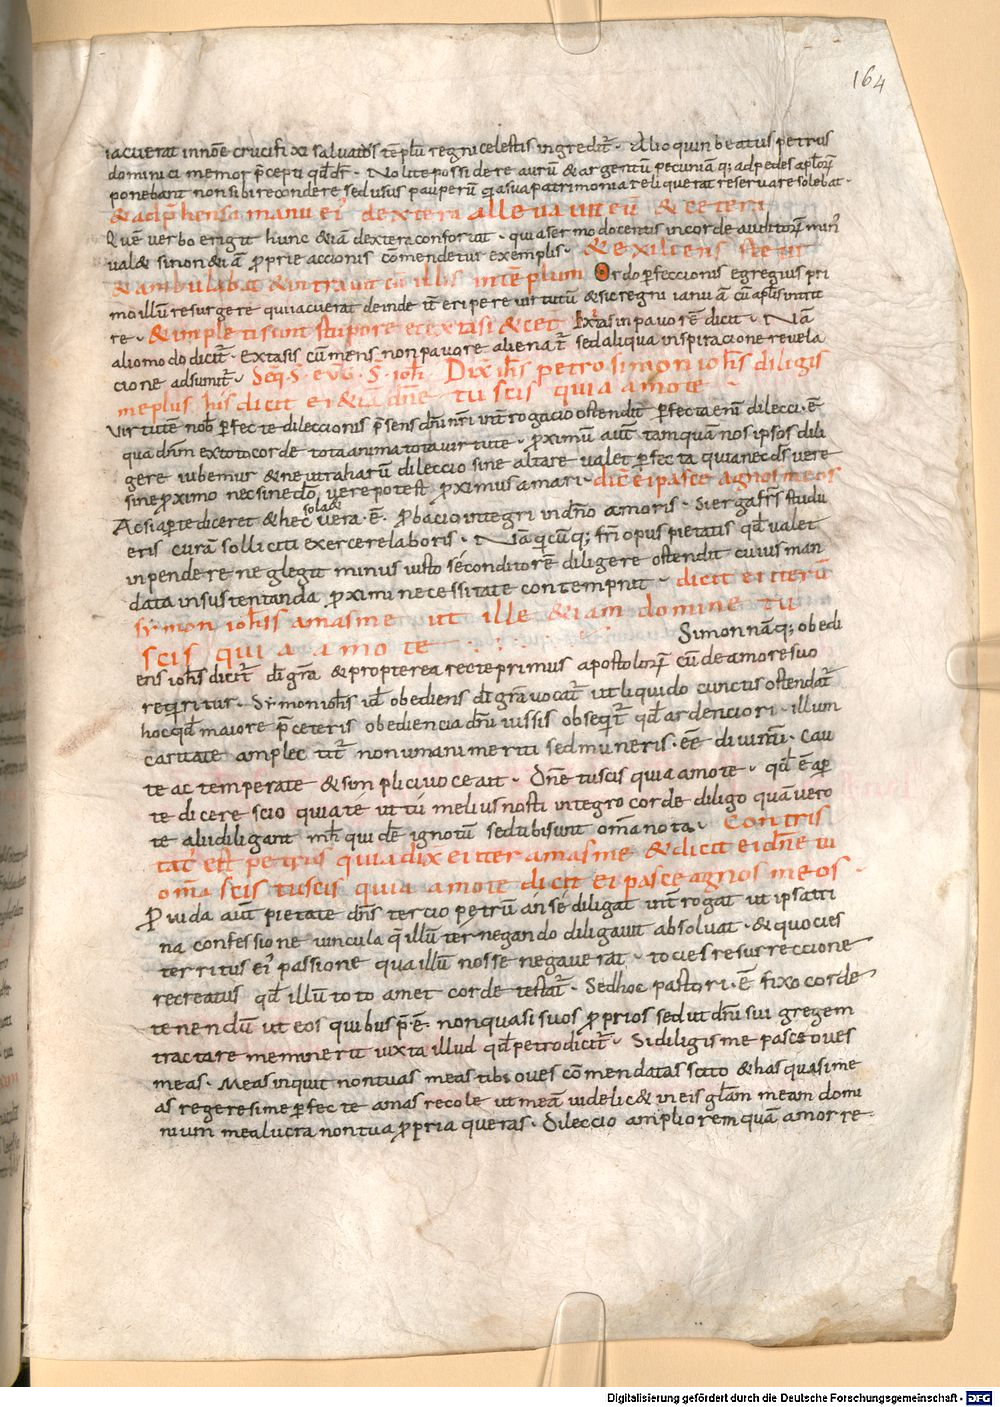 164
iacuerat innoe crucifixi saluatos teplu regni celestis ingredit. Alioquin beatus petrus
dominici memor p̄cepti qd dr. Nolite possidere auru & argentu pecuniaq; adpedes aplorꝝ
ponebant non sibi recondere sed usus pauperu qi sua patrimonia reliquerat reseruare solebat.
& adp̄hensa manu ei dextera alleuauit eū & ceteri
Quē uerbo erigit hunc & iā dextera confortat. quia sermo docentis in corde auditorꝝ min
ual& si non & iā proprie accionis comendetur exemplis. & exiliens stetit
& ambulabat & intrauit cū illis in tēplum Ordo perfeccionis egregius pri
mo illū resurgere qui iacuerat deinde it eripere uirtutū & sic regni ianuā cū aplis intra
re. & impleti sunt stupore et extasi & cet Extas in pauorē dicit. Nā
alio modo dicit. Extasis cū mens non pauore alienat sed aliqua inspiracione reuela
cione adsumit. Seq. S. eug. S. ioh. Dix ihs petro simon iohis diligis
me plus his dicit ei & iā dne tu scis quia amo te
Virtutē nob perfecte dileccionis p̄sens dni nri int rogacio ostendit perfecta eni dilecci. ē
qua dnm ex toto corde tota anima tota uirtute. proximū aut tamquā nos ipsos dili
gere iubemur & ne utraharū dileccio sine altare ualet perfecta quia nec ds uere
sine proximo nec sine dō uere potest proximus amari. dic ei pasce agnos meos
Ac si aperte diceret & hec sola & uera. ē. probacio integri in dno amoris. Si erga frs studu
eris curā solliciti exercere laboris. Nā qcuq; fri opus pietatis qd ualet
inpendere neglegit minus iusto se conditorē diligere ostendit cuius man
data in sustentanda proximi necessitate contempnit. dicit ei iterū
symon iohis amas me ut ille & iam domine tu
scis quia amo te Simon naq; obedi
ens iohis dicit di gra & propterea recte primus apostolorꝝ cū de amore suo
requiritur. Symon iohis id obediens di gra uocat ut liquido cunctis ostendat
hoc qd maiore p̄ ceteris obediencia dni iussis obseqt qd ardenciori illum
caritate amplectit non umani meriti sed muneris. ēe diuini. Cau
te ac temperate & simpliciuoce ait. Dne tu scis quia amo te. qd ē aper
te dicere scio quia te ut tu melius nosti integro corde diligo quā uero
te alii diligant mh quidē ignotū sed tibi sunt oma nota. Contris
tat est petrus quia dix ei iter amas me & dicit ei dne tu
oma scis tu scis quia amo te dicit ei pasce agnos meos.
Puida aut pietate dns tercio petrū an se diligat int rogat ut ipsa tri
na confessione uincula q illū ter negando diligauit absoluat. & quocies
territus ei passione qua illū nosse negauerat. tocies resurreccione
recreatus qd illū toto amet corde testat. Sed hoc pastori. ē fixo corde
tenendū ut eos quibus p̄. ē. non quasi suos proprios sed ut dni sui gregem
tractare meminerit iuxta illud qd petro dicit. Si diligis me pasce oues
meas. Meas inquit non tuas meas tibi oues cōmendatas scito & has quasi me
as regere si me perfecte amas recole ut meā uidelic& in eis glam meam domi
nium mea lucra non tua propria queras. Dileccio ampliorem quā amor re
Digitalisierung gefördert durch die Deutsche Forschungsgemeinschaft - DFG